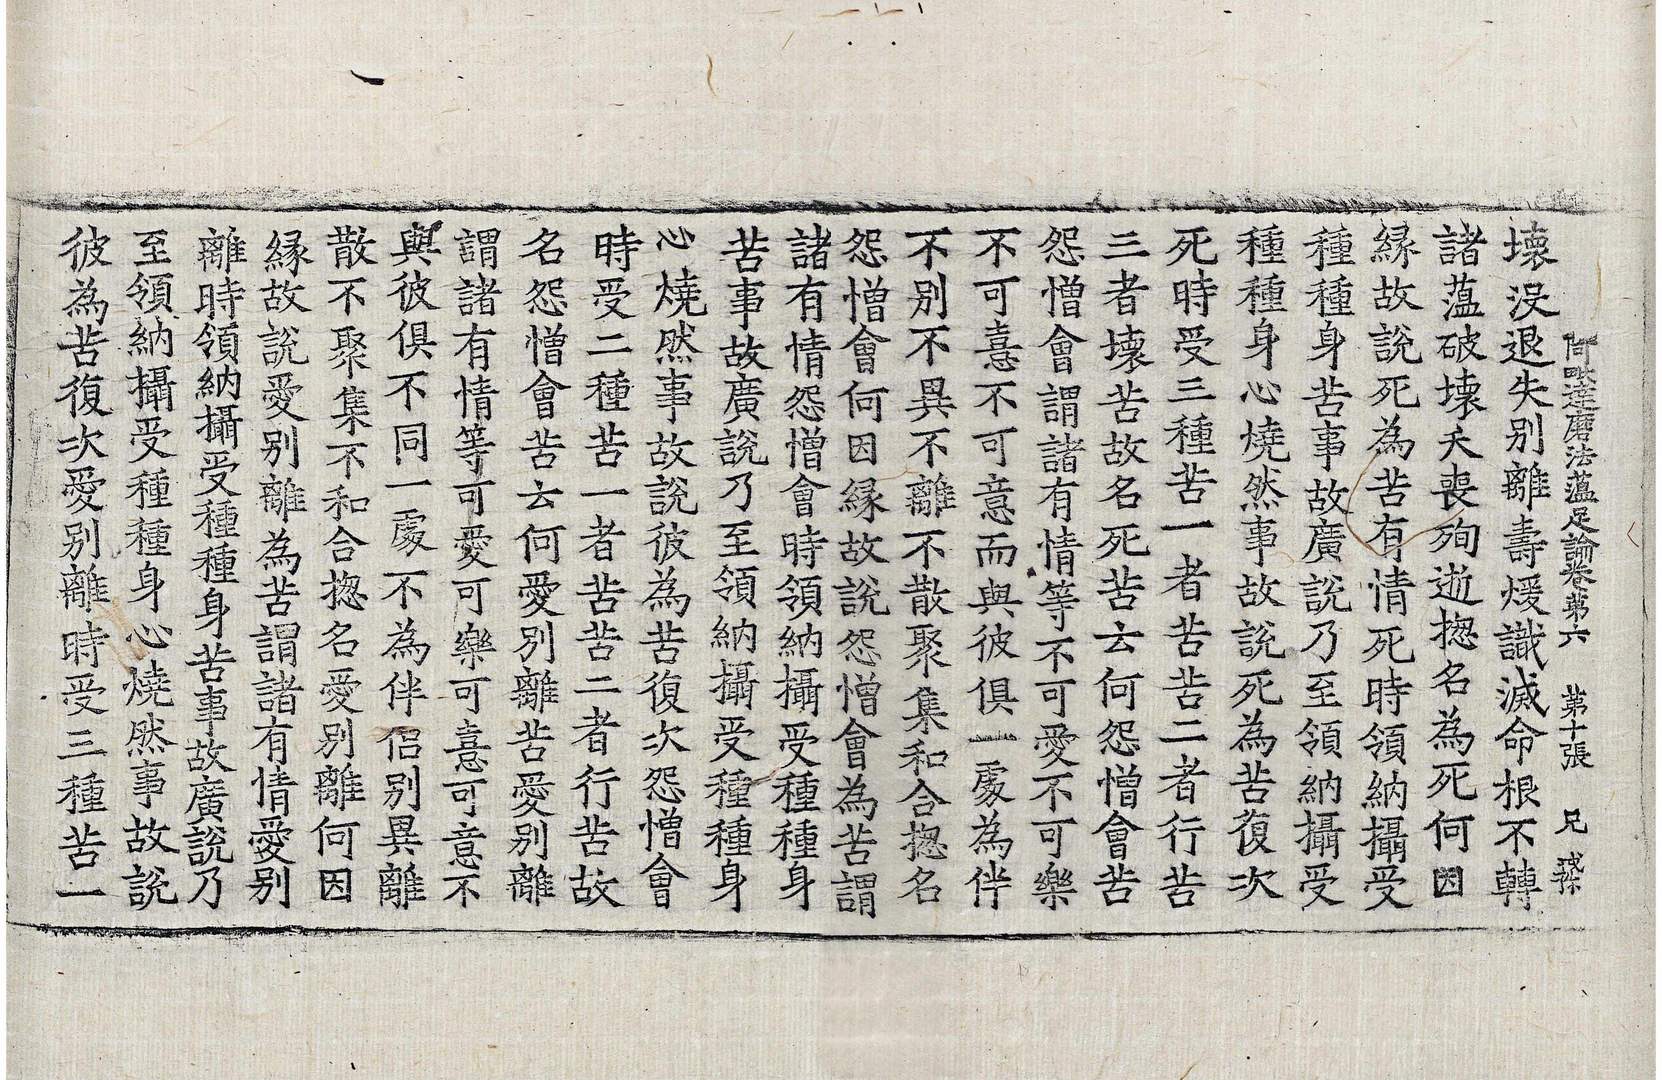 阿毗達磨法蘊足論卷第六　第十張　兄
壞沒退失別離壽煖識滅命根不轉
諸蘊破壞夭喪殉逝揔名為死何因
緣故說死為苦有情死時領納攝受
種種身苦事故廣說乃至領納攝受
種種身心燒然事故說死為苦復次
死時受三種苦一者苦苦二者行苦
三者壞苦故名死苦云何怨憎會苦
怨憎會謂諸有情等不可愛不可樂
不可憙不可意而與彼俱一處為伴
不別不異不離不散聚集和合揔名
怨憎會何因緣故說怨憎會為苦謂
諸有情怨憎會時領納攝受種種身
苦事故廣說乃至領納攝受種種身
心燒然事故說彼為苦復次怨憎會
時受二種苦一者苦苦二者行苦故
名怨憎會苦云何愛別離苦愛別離
謂諸有情等可愛可樂可憙可意不
與彼俱不同一處不為伴侶別異離
散不聚集不和合揔名愛別離何因
緣故說愛別離為苦謂諸有情愛別
離時領納攝受種種身苦事故廣說乃
至領納攝受種種身心燒然事故說
彼為苦復次愛別離時受三種苦一